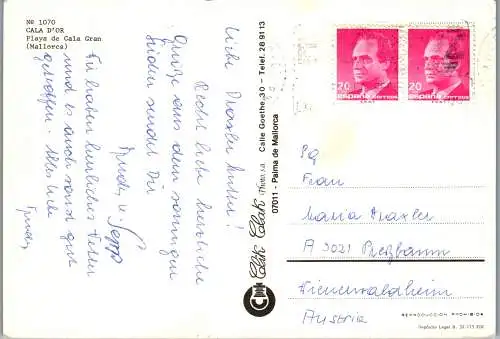 Nº 1070
CALA D'OR
Playa de Cala Gran
(Mallorca)
Liebe Draxler Mutter!
Recht liebe herzliche
Grüße aus dem sonnigen
Süden sendet Dir
Trudy u. Sepp
Wir haben herrliches Wetter
und es auch sonst gut
getroffen. Alles liebe
Trudy
Clik Clak (Photo) s.a. Calle Goethe 30 - Telef. 28 91 13
07011 - Palma de Mallorca
20
ESPAÑA CORREOS
20
ESPAÑA CORREOS
Frau
Maria Draxler
A 3021 Preßbaum
Wienerwaldheim
Austria
REPRODUCCION PROHIBIDA